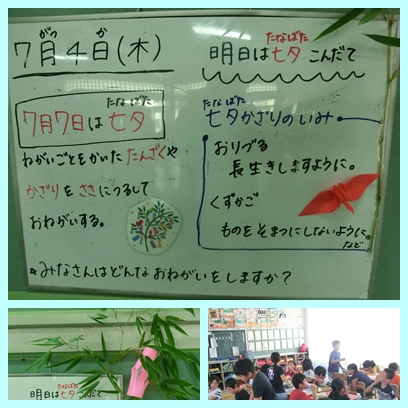 7月4日(木)
がつ か
7月7日は七夕
たなばた
ねがいごとをかいた たんざくや
かざりを ささにつるして
おねがいする。
明日は七夕こんだて
たなばた
七夕かざりのいみ
たなばた
おりづる
長生きしますように。
くずかご
ものをそまつにしないように。
など
★みなさんはどんなおねがいをしますか?
明日は七夕こんだて
たなばた